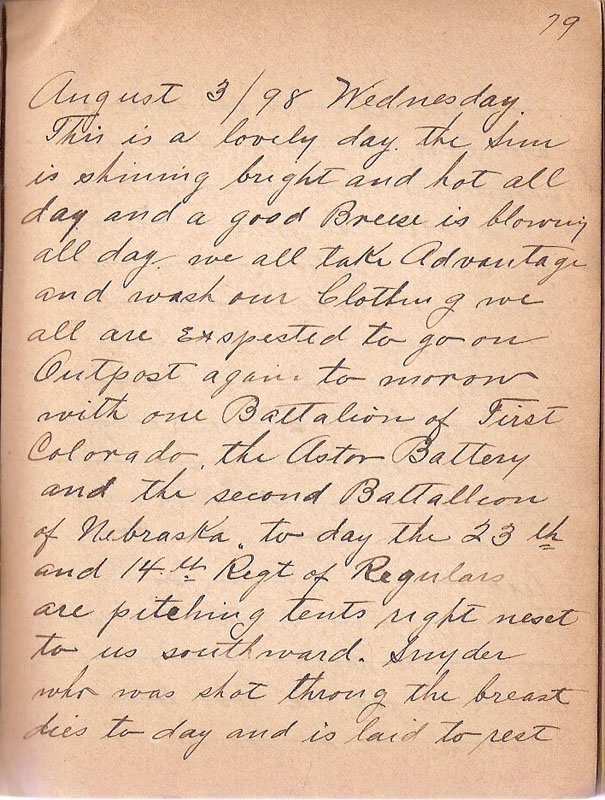 79
August 3/98 Wednesday.
This is a lovely day. the Sun
is shining bright and hot all
day and a good Breese is blowing
all day. we all take Advantage
and wash our Clothing we
all are Exspested to go on
Outpost again to morow
with one Battalion of First
Colorado, the Astor Battery
and the second Battallion
of Nebraska. to day the 23 th
and 14.th Regt of Regulars
are pitching tents right neset
to us southward. Snyder
who was shot throug the breast
dies to day and is laid to rest